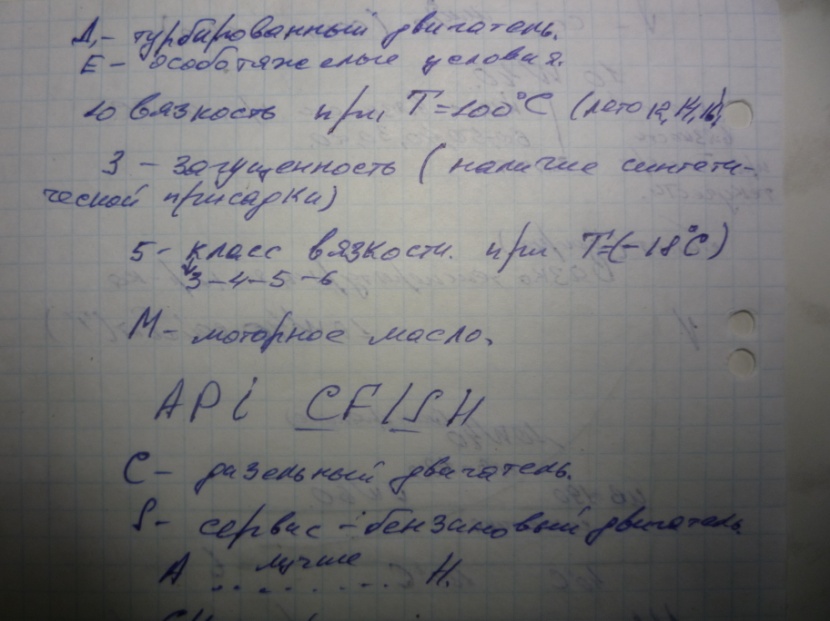 Д,- турбированный двигатель.
Е - особотяжелые условия.
10 вязкость при, T=100°C (лето 12, 14, 16)
З - загущенность (наличие синтети-
ческой присадки)
5 - класс вязкости. при T=(-18°C)
3-4-5-6
М - моторное масло.
API CF/SH
С - дизельный двигатель.
S - сервис - бензиновый двигатель.
А лучше Н.